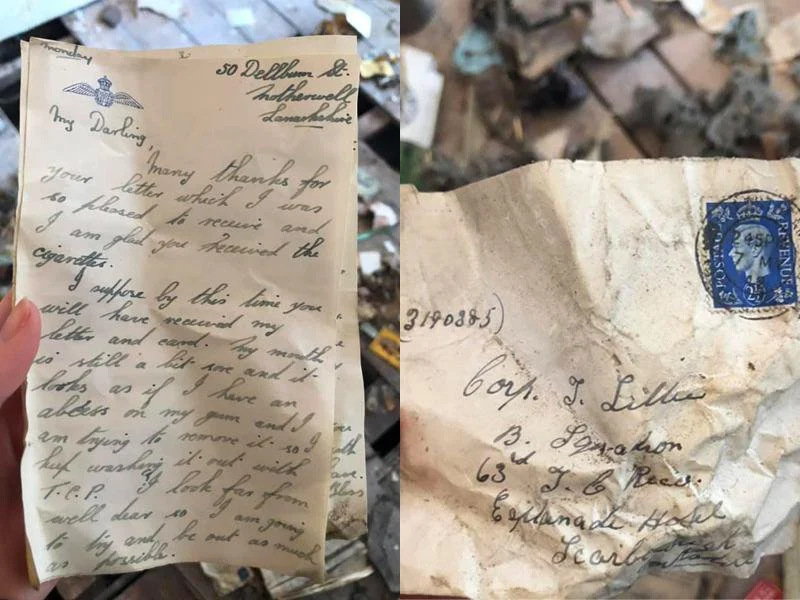 Monday
50 Dellburn St.
Motherwell
Lanarkshire
My Darling,
Many thanks for
your letter which I was
so pleased to receive and
I am glad you received the
cigarettes.
I suppose by this time you
will have received my
letter and card. My mouth
is still a bit sore and it
looks as if I have an
abcess on my gum and I
am trying to remove it so I
keep washing it out with
T.C.P. I look far from
well dear so I am going
to try and be out as much
as possible.
POSTAGE
REVENUE
24 SP
7 M
2½
3190385)
Corp. J. Lillie
B. Squadron
63rd T. C Recc.
Esplanade Hotel
Scarborough